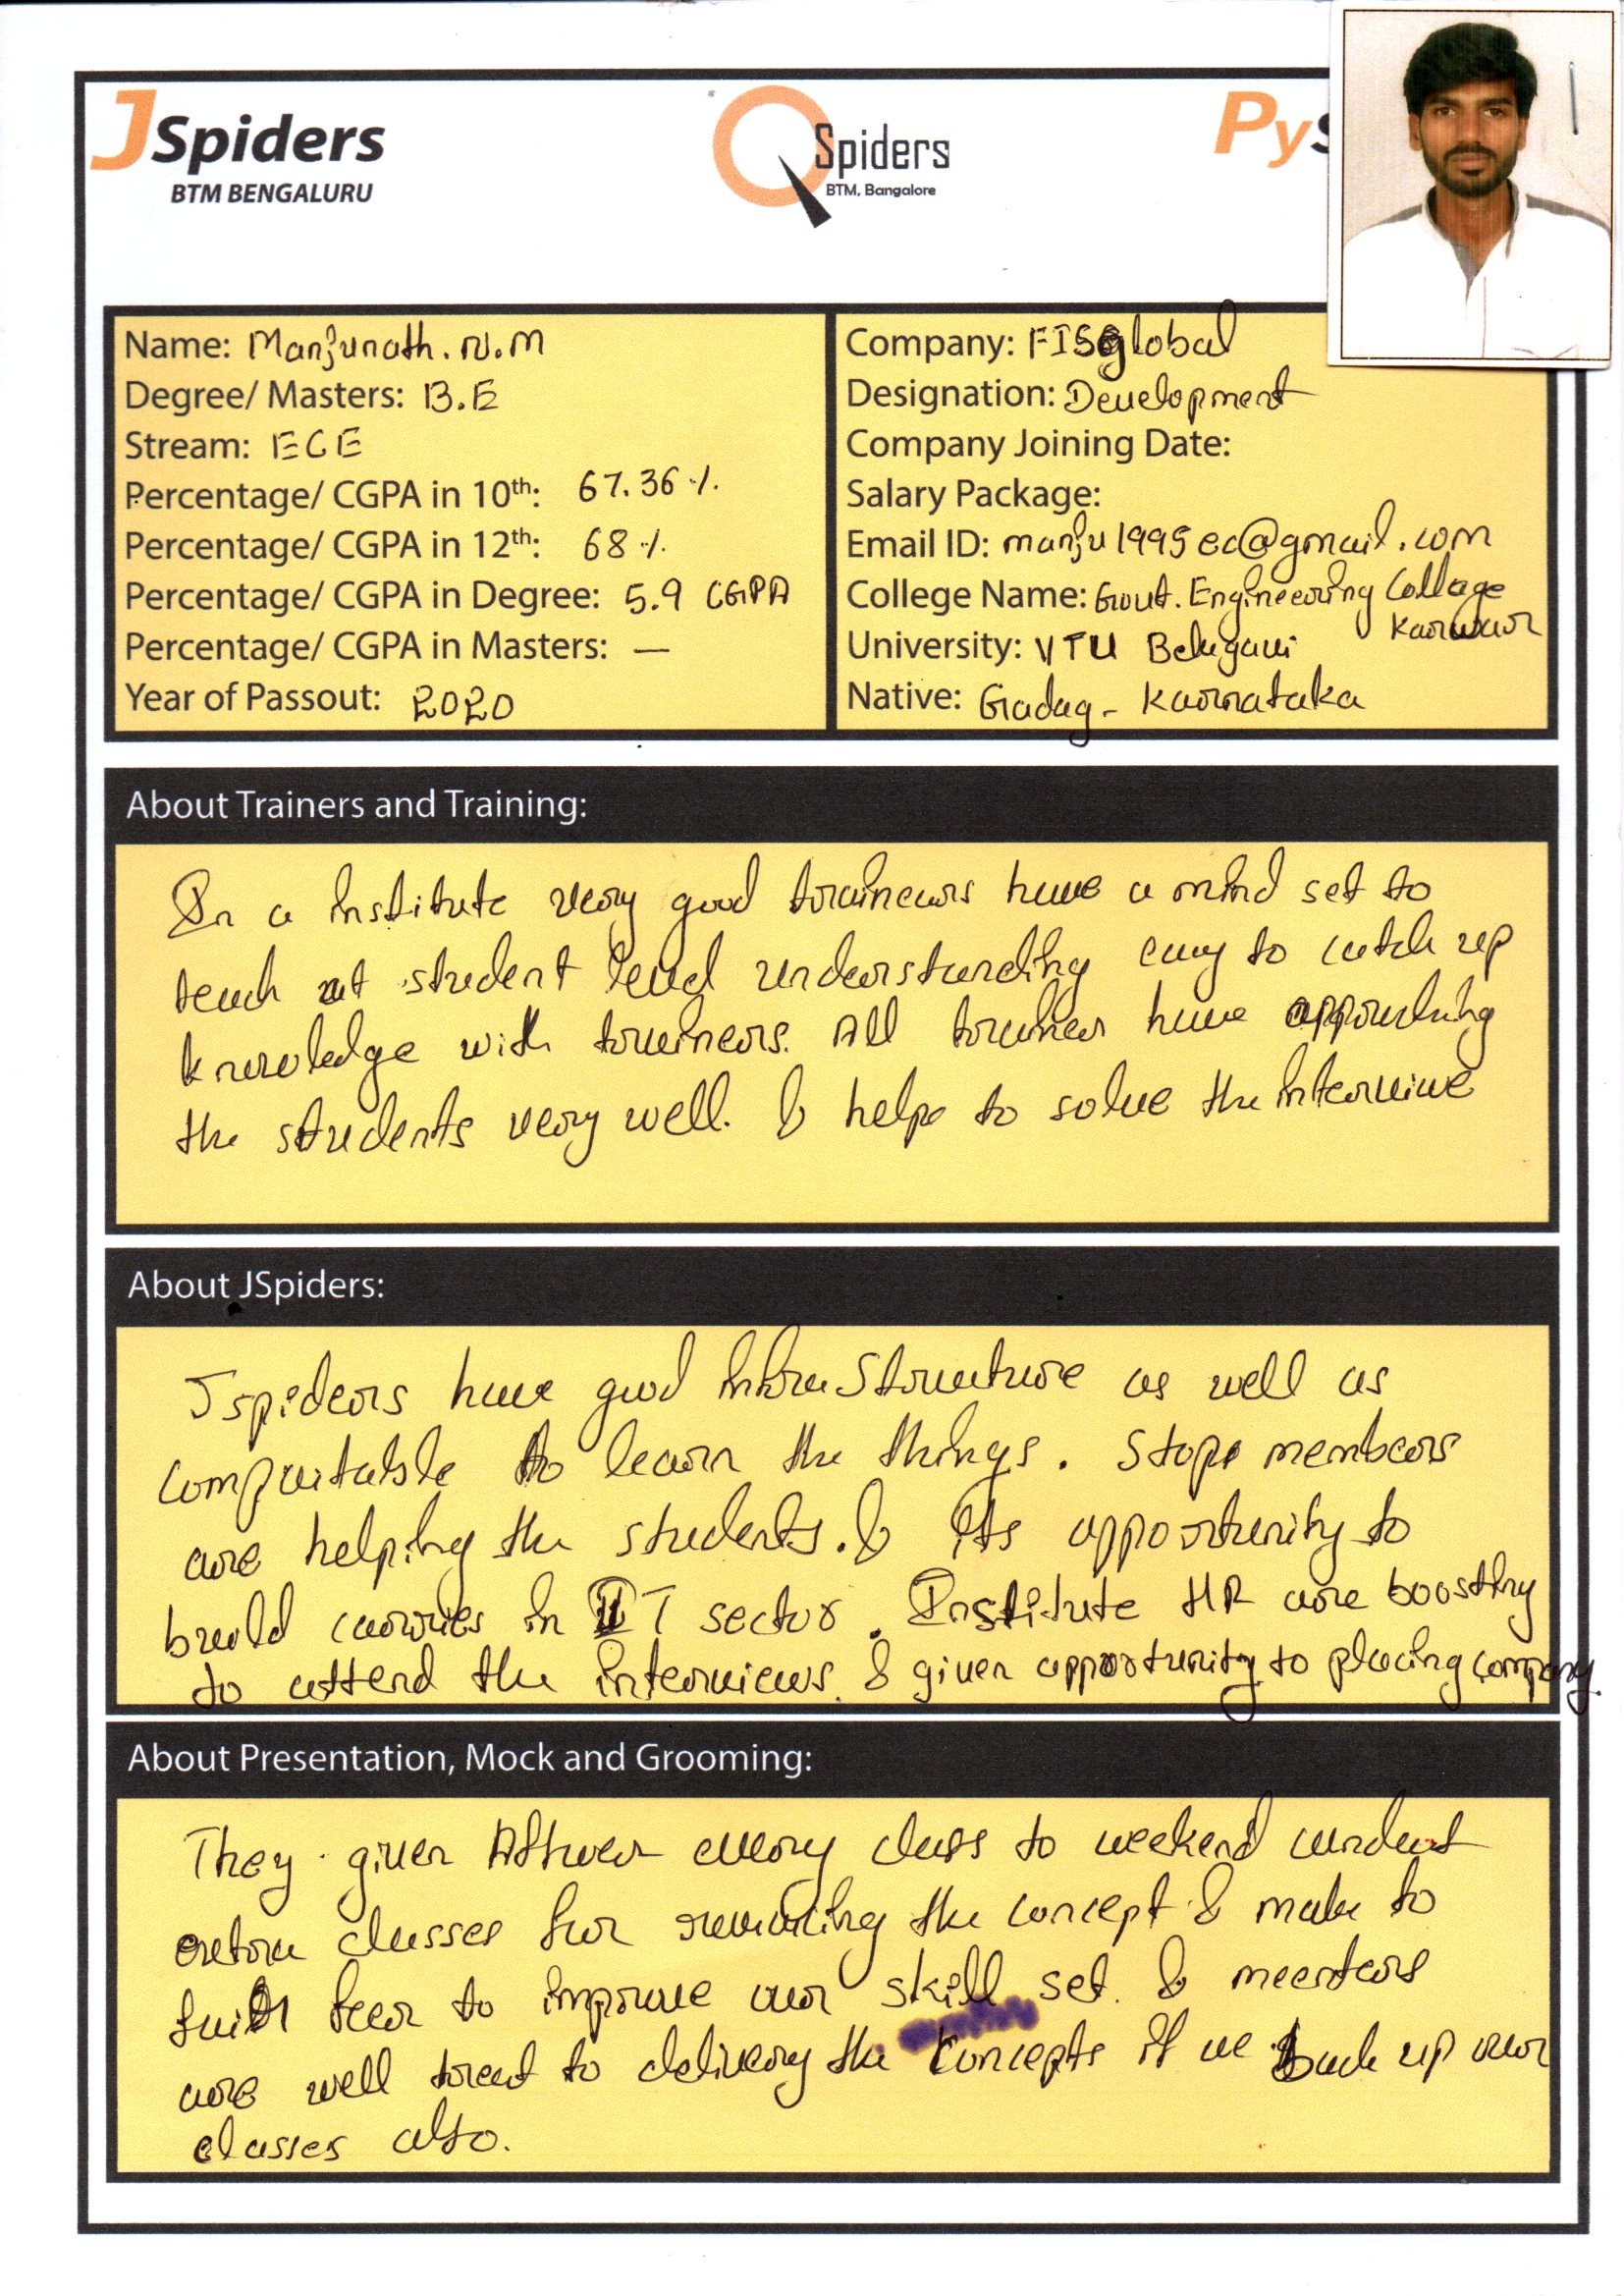 JSpiders
BTM BENGALURU
QSpiders
BTM, Bangalore
PyS
Name: Manjunath.N.M
Degree/ Masters: B.E
Stream: ECE
Percentage/ CGPA in 10th: 67.36 %
Percentage/ CGPA in 12th: 68 %
Percentage/ CGPA in Degree: 5.9 CGPA
Percentage/ CGPA in Masters: —
Year of Passout: 2020
Company: FIS global
Designation: Development
Company Joining Date:
Salary Package:
Email ID: manju1995ec@gmail.com
College Name: Govt. Engineering College
Karwar
University: VTU Belagavi
Native: Gadag - Karnataka
About Trainers and Training:
In a institute very good trainers have a mind set to
teach at student level understanding easy to catch up
knowledge with trainers. All trainer have approching
the students very well. & helps to solve the interviwe
About JSpiders:
Jspiders have good infraStructure as well as
comfortable to learn the things. Stope members
are helping the students. & its opportunity to
build carries in IT sector. Institute HR are boosting
to attend the interviews. & given opportunity to placing company.
About Presentation, Mock and Grooming:
They given After every class to weekend conduct
extra classes for the concept & make to
to improve our skill set. & meentors
are well treat to delivery the concepts if we back up our
classes also.